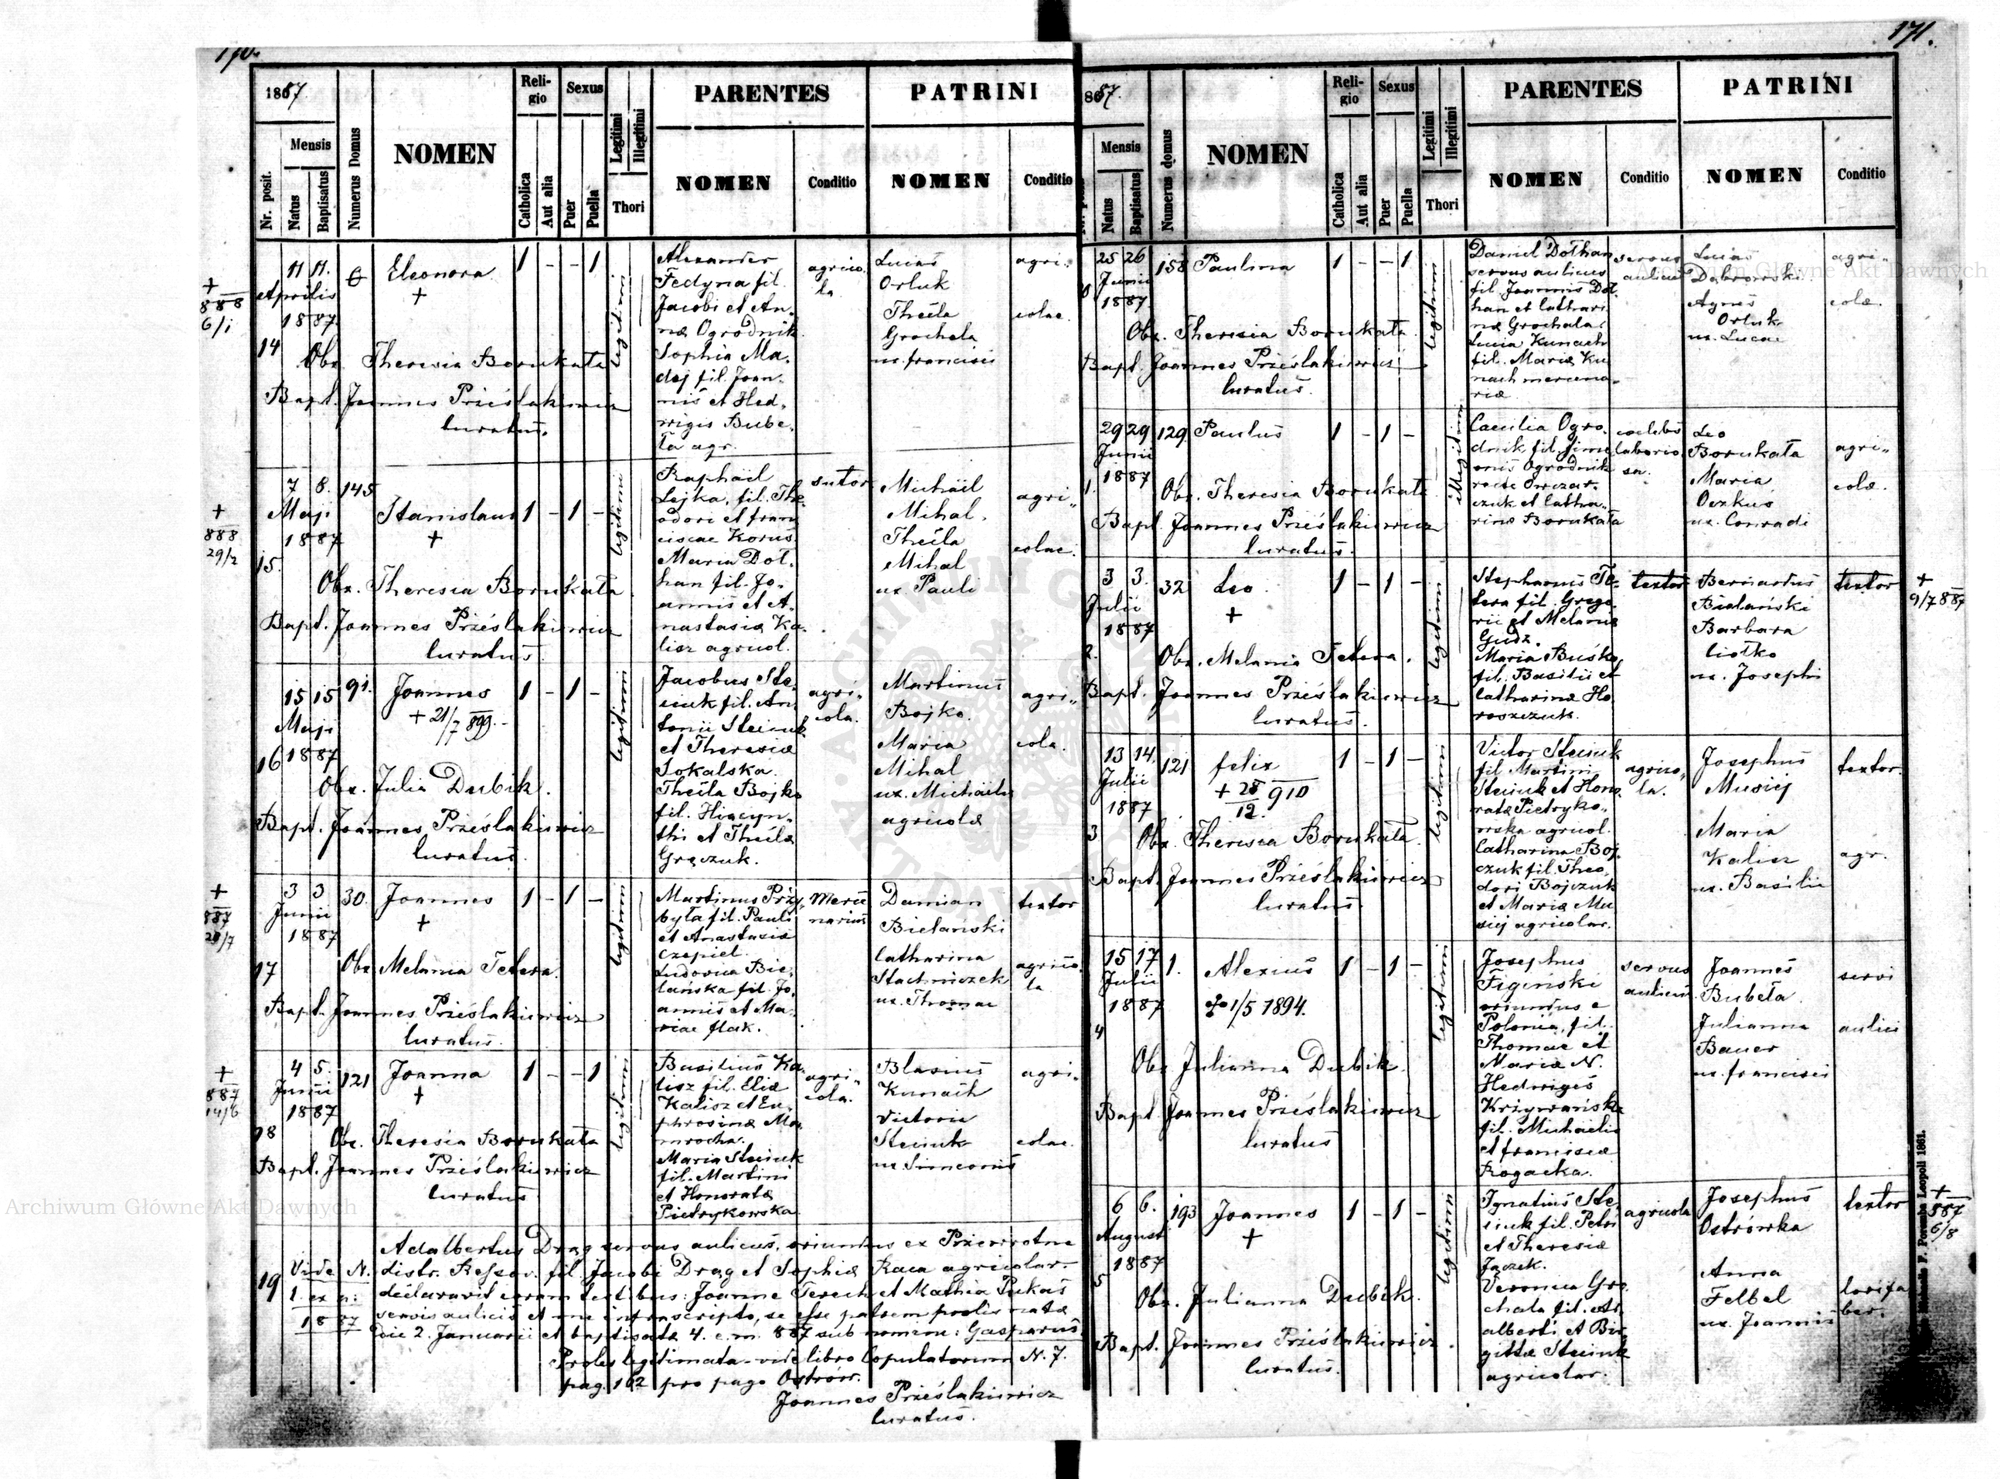 170.
1887
Nr. posit.
Mensis
Natus
Baptisatus
Numerus Domus
NOMEN
Religio
Catholica
Aut alia
Sexus
Puer
Puella
Legitimi
Illegitimi
Thori
PARENTES
NOMEN
Conditio
PATRINI
NOMEN
Conditio
+
888
6/1
14
11 11.
Aprilis
1887.
6
Eleonora
+
1 - - 1
legitimi
Obx. Theresia Borukata
Bapt. Joannes Prześlakiewicz
curatus.
Alexander
Fedyna fil.
Jacobi et An-
næ Ogrodnik
Sophia Ma-
dej fil. Joan-
nis et Hed-
wigis Bube-
ła agr.
agrico-
la.
Lucas
Orluk
Thecla
Grochala
ux. francisci
agri-
colae.
+
888
29/2
15.
7 8.
Maji
1887
145.
Stanislaus
+
1 - 1 -
legitimi
Obx. Theresia Borukata
Bapt. Joannes Prześlakiewicz
curatus.
Raphaël
Lejka, fil. The-
odori et fran-
ciscae Korus.
Maria Dot-
han fil. Jo-
annis et A-
nastasiæ Ka-
lisz agricol.
sutor
Michaël
Mihal.
Thecla
Mihal
ux. Pauli
agri-
colae.
16
15 15
Maji
1887
91.
Joannes
+ 21/7 899.
1 - 1 -
legitimi
Obx. Julia Dubik.
Bapt. Joannes Prześlakiewicz
curatus.
Jacobus Ste-
ciuk fil. An-
tonii Steciuk
et Theresiæ
Sokalska.
Thecla Bojko
fil. Hiacyn-
thi et Theclæ
Gręczuk.
agri-
cola.
Martinus
Bojko.
Maria
Mihal
ux. Michaëlis
agricolæ
agri-
cola.
+
887
29/7
17
3 3
Junii
1887
30.
Joannes
+
1 - 1 -
legitimi
Obx. Melania Tetera.
Bapt. Joannes Prześlakiewicz
curatus.
Martinus Przy-
była fil. Pauli
et Anastasiæ
Czapiel.
Ludovica Bie-
lańska fil. Jo-
annis et Ma-
riae flak.
Merce-
narius
Damian
Bielański
Catharina
Stachniczek
ux. Thomae
textor
agrico-
la
+
887
14/6
18
4 5.
Junii
1887
121
Joanna
+
1 - - 1
legitimi
Obx. Theresia Borukata
Bapt. Joannes Prześlakiewicz
curatus.
Basilius Ka-
lisz fil. Eliæ
Kalisz et Eu-
phrosinæ Ma-
mrocha.
Maria Steciuk
fil. Martini
et Honoratæ
Pietrykowska
agri-
cola.
Blasius
Kunach
Victoria
Steciuk
ux Simeonis
agri-
colae.
19
Vide N.
1. ex a:
1887
Adalbertus Drag servus aulicus, oriundus ex Przewrotne
distr. Rzeszov. fil Jacobi Drag et Sophiæ Raca agricolar.
declaravit coram testibus: Joanne Terech et Mathia Pukas
servis aulicis et me infrascripto, se esse patrem prolis natæ
die 2. Januarii et baptisatæ 4. e. m. 887 sub nomem: Gasparus.
Proles legitimata - vide libro Copulatorum N. 7.
pag. 162 pro pago Ostrow.
Joannes Prześlakiewicz
curatus.
171.
1887.
Mensis
Natus
Baptisatus
Numerus domus
NOMEN
Religio
Catholica
Aut alia
Sexus
Puer
Puella
Legitimi
Illegitimi
Thori
PARENTES
NOMEN
Conditio
PATRINI
NOMEN
Conditio
0
25 26
Junii
1887.
158
Paulina
1 - - 1
legitimi
Obx. Theresia Borukata.
Bapt. Joannes Prześlakiewicz
curatus.
Daniel Dothan
servus aulicus
fil. Joannis Dot-
han et Cathari-
næ Grochala.
Lucia Kunach
fil. Mariæ Ku-
nach mercena-
riæ
servus
aulicus
Lucas
Dąbrowski.
Agnes
Orluk
ux. Lucae
agri-
colæ.
1.
29 29
Junii
1887
129
Paulus
1 - 1 -
illegitimi
Obx. Theresia Borukata
Bapt. Joannes Prześlakiewicz
curatus.
Caecilia Ogro-
dnik fil. Sime-
onis Ogrodnik
recte Owczar-
czuk et Catha-
rinæ Borukata
coelebs
laborio-
sa.
Leo
Borukata
Maria
Oczkus
ux. Conradi
agri-
colæ.
2.
3 3.
Julii
1887
32
Leo
+
1 - 1 -
legitimi
Obx. Melania Tetera.
Bapt. Joannes Prześlakiewicz
curatus.
Stephanus Te-
tera fil. Grego-
rii et Melaniæ
Gudz.
Maria Buśko
fil. Basilii et
Catharinæ Ho-
roszczuk.
textor
Bernardus
Bielański
Barbara
Ciołko
ux. Josephi
textor
+
9/7 887
3
13 14.
Julii
1887
121
felix
+ 28/12 910
1 - 1 -
legitimi
Obx. Theresia Borukata.
Bapt. Joannes Prześlakiewicz
curatus.
Victor Steciuk
fil Martini
Steciuk et Hono-
ratæ Pietryko-
wska agricol.
Catharina Boj-
czuk fil. Theo-
dori Bojczuk
et Mariæ Mu-
siej agricolar.
agrico-
la.
Josephus
Musiej
Maria
Kalisz
ux. Basilii
textor.
agr.
4
15 17
Julii
1887
1.
Alexius
1/5 1894.
1 - 1 -
legitimi
Obx Julianna Dubik.
Bapt. Joannes Prześlakiewicz
curatus
Josephus
Figiński
oriundus e
Polonia, fil.
Thomae et
Mariæ N.
Hedwiges
Krzywańska
fil. Michaelis
et franciscæ
Rogacka.
servus
aulicus
Joannes
Bubeła.
Julianna
Bauer
ux. francisci
servi
aulici
5
6 6.
August
1887
193
Joannes
+
1 - 1 -
legitimi
Obx. Julianna Dubik.
Bapt. Joannes Prześlakiewicz.
curatus.
Ignatius Ste-
ciuk fil. Petri
et Theresiæ
Jaczek.
Veronica Gro-
chala fil. Ad-
alberti et Bri-
gittæ Steciuk
agricolar.
agricola
Josephus
Ostrówka
Anna
Felbel
ux. Joannis
textor
lorifa
ber.
+
887
6/8
Michaelis F. Poremba Leopoli 1861.
Archiwum Główne Akt Dawnych
Archiwum Główne Akt Dawnych
ARCHIWUM GŁÓWNE AKT DAWNYCH